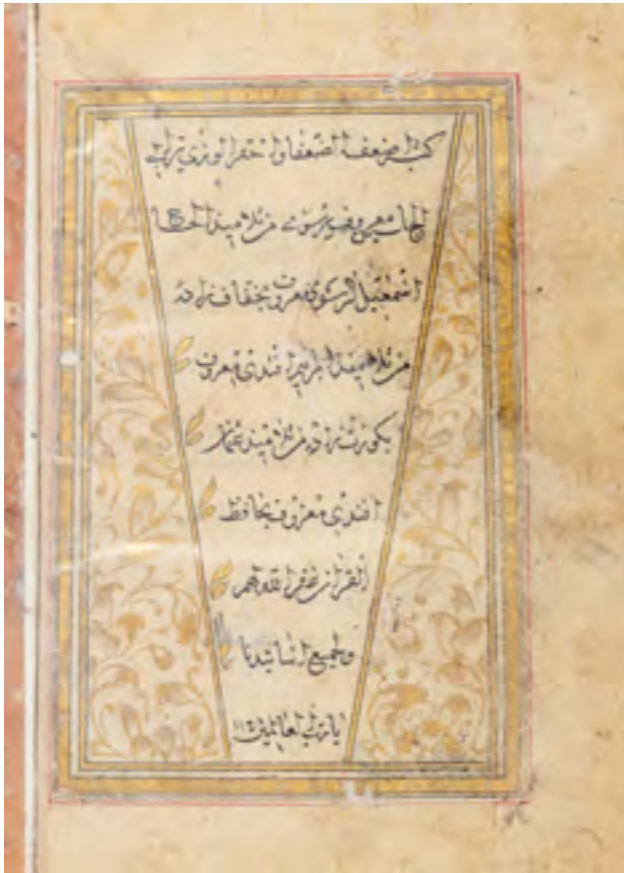 كتبه اضعف الضعفا واحقر الورى تراب
الحاج من تلاميذ الحاج
اسمعيل معروف بخفاف زاده
من تلاميذ ابراهيم افندى معروف
زاده من تلاميذ عثمان
افندى معروف بحافظ
القران غفر الله لهم
ولجميع اساتيذنا
يا رب العالمين